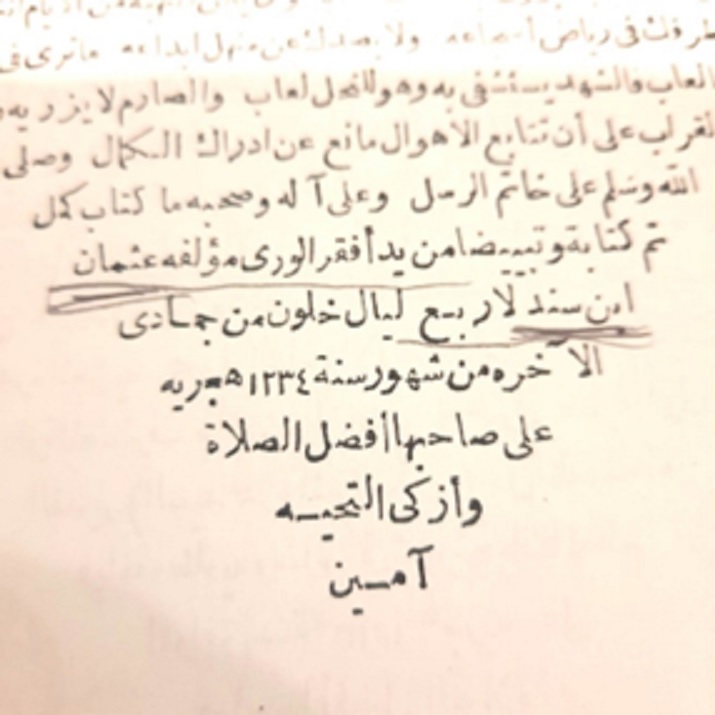 طرفك في رياض أسجاعه ولا يصدك عن منهل إبداعه ما ترى في
العاب فالشهد يستشفى به وهو للنحل لعاب والصارم لا يزريه
القراب على أن تتابع الاهوال مانع عن ادراك الكمال وصلى
الله وسلم على خاتم الرسل وعلى آله وصحبه ما كتاب كمل
تم كتابة وتبييضا من يد أفقر الورى مؤلفه عثمان
ابن سند لاربع ليال خلون من جمادى
الآخره من شهور سنة ١٢٣٤ هجريه
على صاحبها أفضل الصلاة
وأزكى التحيــه
آمــين